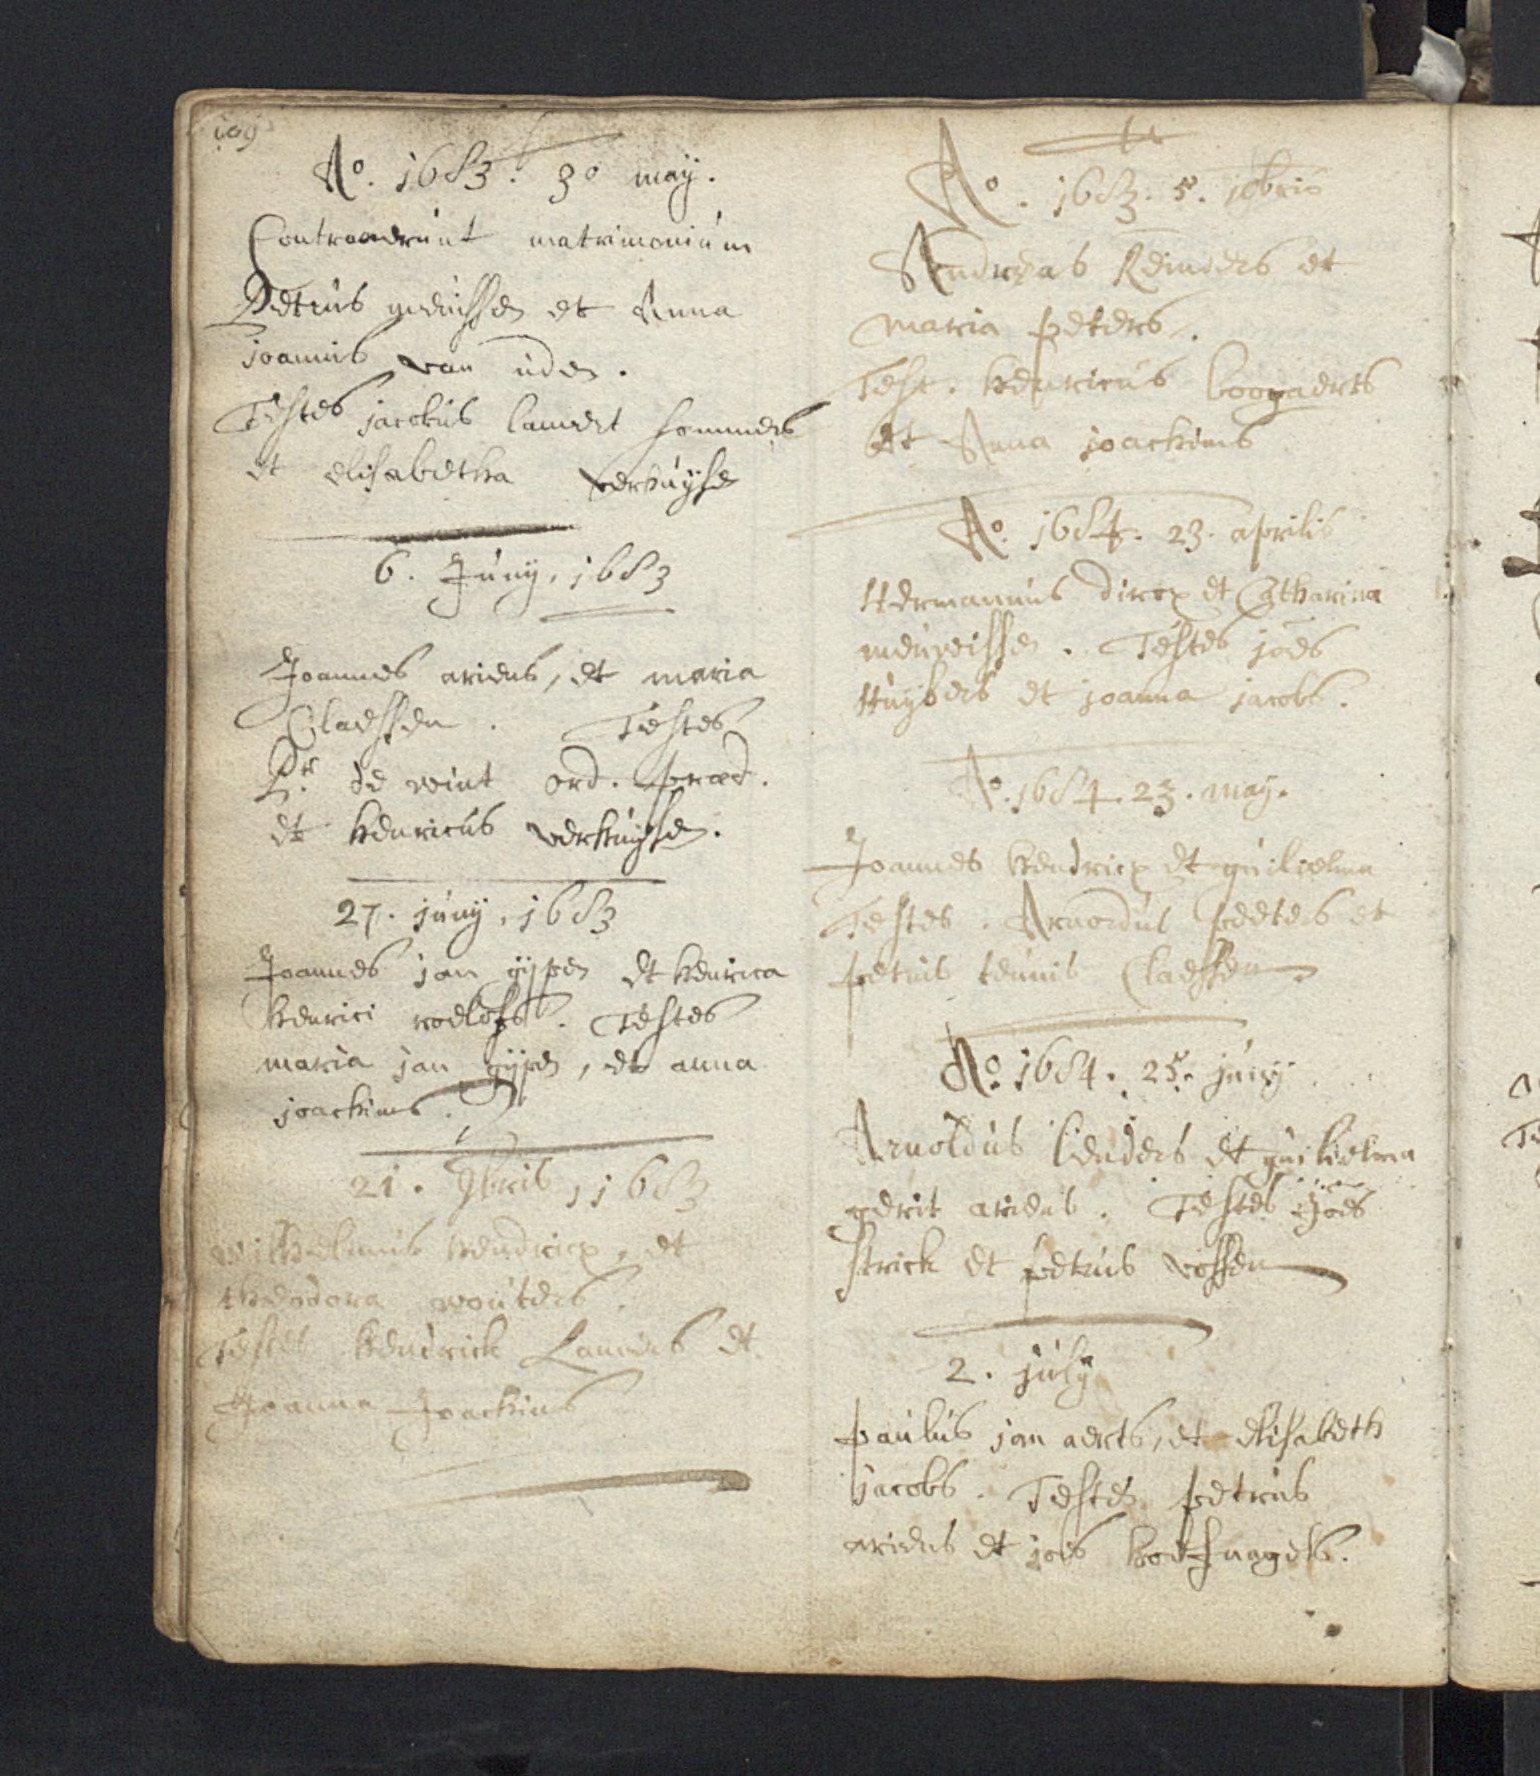 109
Aº. 1683. 30 may.
Contraxerunt matrimonium
Petrus geurssen et Anna
joannis van uden.
Testes jacobus lamert sommers
et elisabetha verhuyse
6. Juny, 1683
Joannes ariens, et maria
Claessen. Testes
Pr. de wint ord. præd.
et henricus verhuysen.
27. juny, 1683
Joannes jan gypen et henrica
henrici roelofs. Testes
maria jan gypen, et anna
joachims.
21. 9bris, 1683
wilhelmus hendricx, et
theodora wouters.
Testes hendrick Lamers et
Joanna Joachims
Aº. 1683. 5. xbris
Andreas Reinders et
maria peters.
Test. henricus boogaerts
et Anna joachims
Aº. 1684. 23. aprilis
Hermannus dircx et Catharina
meuwissen. Testes joes
Huybers et joanna jacobs.
Aº. 1684. 23. may.
Joannes hendricx et guilielma
Testes. Arnoldus peeters et
petrus teunis Claessen
Aº. 1684. 25. juny
Arnoldus lenders et guilielma
gerit ariens. Testes Joes
strick et petrus vossen
2. july
paulus jan aerts, et elisabeth
jacobs. Testes petrus
ariens et joes hoefnagels.